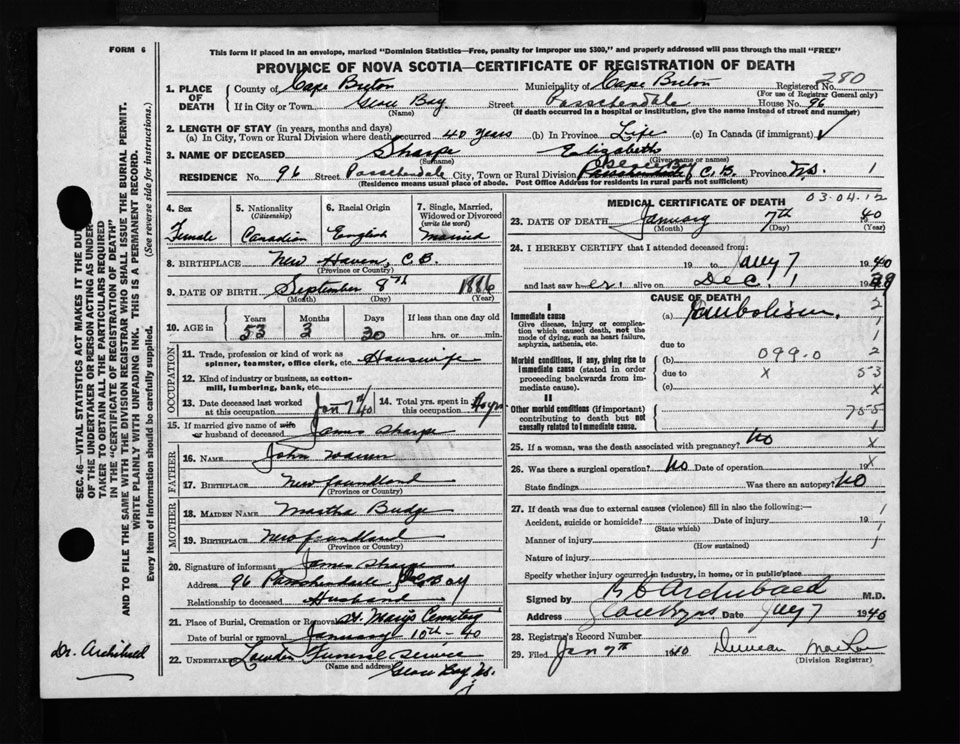 FORM 6
This form if placed in an envelope, marked "Dominion Statistics—Free, penalty for improper use $300," and properly addressed will pass through the mail "FREE"
PROVINCE OF NOVA SCOTIA—CERTIFICATE OF REGISTRATION OF DEATH
280
1. PLACE OF DEATH
County of Cape Breton Municipality of Cape Breton Registered No.
(For use of Registrar General only)
If in City or Town Glace Bay Street Passchendale House No. 96
(Name) (If death occurred in a hospital or institution, give the name instead of street and number)
2. LENGTH OF STAY (in years, months and days)
(a) In City, Town or Rural Division where death occurred 40 years (b) In Province Life (c) In Canada (if immigrant) ✓
3. NAME OF DECEASED Sharpe Elizabeth
(Surname) (Given name or names)
RESIDENCE No. 96 Street Passchendale City, Town or Rural Division C.B. Province N.S. 1
(Residence means usual place of abode. Post Office Address for residents in rural parts not sufficient)
4. Sex
Female
5. Nationality
(Citizenship)
Canadian
6. Racial Origin
English
7. Single, Married, Widowed or Divorced
(write the word)
Married
8. BIRTHPLACE New Haven, C.B.
(Province or Country)
9. DATE OF BIRTH September 8th 1886
(Month) (Day) (Year)
10. AGE in Years Months Days If less than one day old
53 3 30 hrs. or min.
OCCUPATION
11. Trade, profession or kind of work as spinner, teamster, office clerk, etc. Housewife
12. Kind of industry or business, as cotton-mill, lumbering, bank, etc.
13. Date deceased last worked at this occupation Jan 7th/40
14. Total yrs. spent in this occupation
15. If married give name of wife or husband of deceased James Sharpe
FATHER
16. NAME John Warren
17. BIRTHPLACE Newfoundland
(Province or Country)
MOTHER
18. MAIDEN NAME Martha Budge
19. BIRTHPLACE Newfoundland
(Province or Country)
20. Signature of informant James Sharpe
Address 96 Passchendale Bay
Relationship to deceased Husband
21. Place of Burial, Cremation or Removal St. Mary's Cemetery
Date of burial or removal January 10th - 40
22. UNDERTAKER Funeral Service
(Name and address) Glace Bay N.S.
MEDICAL CERTIFICATE OF DEATH 03-04-12
23. DATE OF DEATH January 7th 1940
(Month) (Day) (Year)
24. I HEREBY CERTIFY that I attended deceased from:
19 to Jany 7 1940
and last saw her alive on Dec. 1 1939
CAUSE OF DEATH
I
Immediate cause (a) Embolism 2
Give disease, injury or complication which caused death, not the mode of dying, such as heart failure, asphyxia, asthenia, etc.
1
due to 1
Morbid conditions, if any, giving rise to immediate cause (stated in order proceeding backwards from immediate cause).
(b) 099.0 2
due to X 53
(c) X
II
Other morbid conditions (if important) contributing to death but not causally related to immediate cause.
755
1
25. If a woman, was the death associated with pregnancy? No X
26. Was there a surgical operation? No Date of operation 19 X
State findings Was there an autopsy? No
27. If death was due to external causes (violence) fill in also the following:— 1
Accident, suicide or homicide? Date of injury 19 1
(State which)
Manner of injury 1
(How sustained)
Nature of injury
Specify whether injury occurred in industry, in home, or in public place
Signed by Archibald M.D.
Date Jany 7 1940
28. Registrar's Record Number
29. Filed Jan 7th 1940 Duncan
(Division Registrar)
SEC. 46—VITAL STATISTICS ACT MAKES IT THE DUTY
OF THE UNDERTAKER OR PERSON ACTING AS UNDERTAKER
TO OBTAIN ALL THE PARTICULARS REQUIRED
IN THE "CERTIFICATE OF REGISTRATION OF DEATH"
AND TO FILE THE SAME WITH THE DIVISION REGISTRAR WHO SHALL ISSUE THE BURIAL PERMIT.
WRITE PLAINLY WITH UNFADING INK. THIS IS A PERMANENT RECORD.
Every item of information should be carefully supplied. (See reverse side for instructions.)
Dr. Archibald